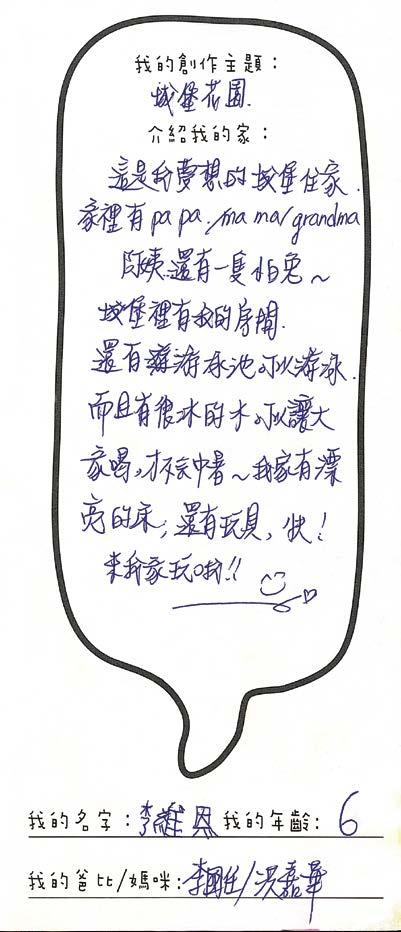 我的創作主題：
城堡花園.
介紹我的家：
這是我夢想的城堡住家.
家裡有papa./mama/grandma
阿姨.還有一隻小白兔～
城堡裡有我的房間.
還有游泳池.可以游泳.
而且有很冰的水.可以讓大
家喝,才不會中暑～我家有漂
亮的床,還有玩具,快!
來我家玩喲!!
我的名字：李 恩 我的年齡：6
我的爸比/媽咪：李國任/洪嘉華